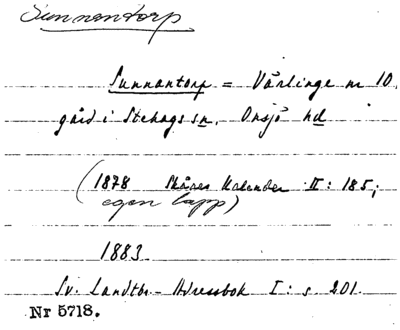 Sunnantorp
Sunnantorp = Vårlinge nr 10,
gård i Stehags sn, Onsjö hd
(1878 Skånes Kalender II: 185;
egen lapp)
1883
Sv. Landtbr.-Adressbok I: s 201.
Nr 5718.